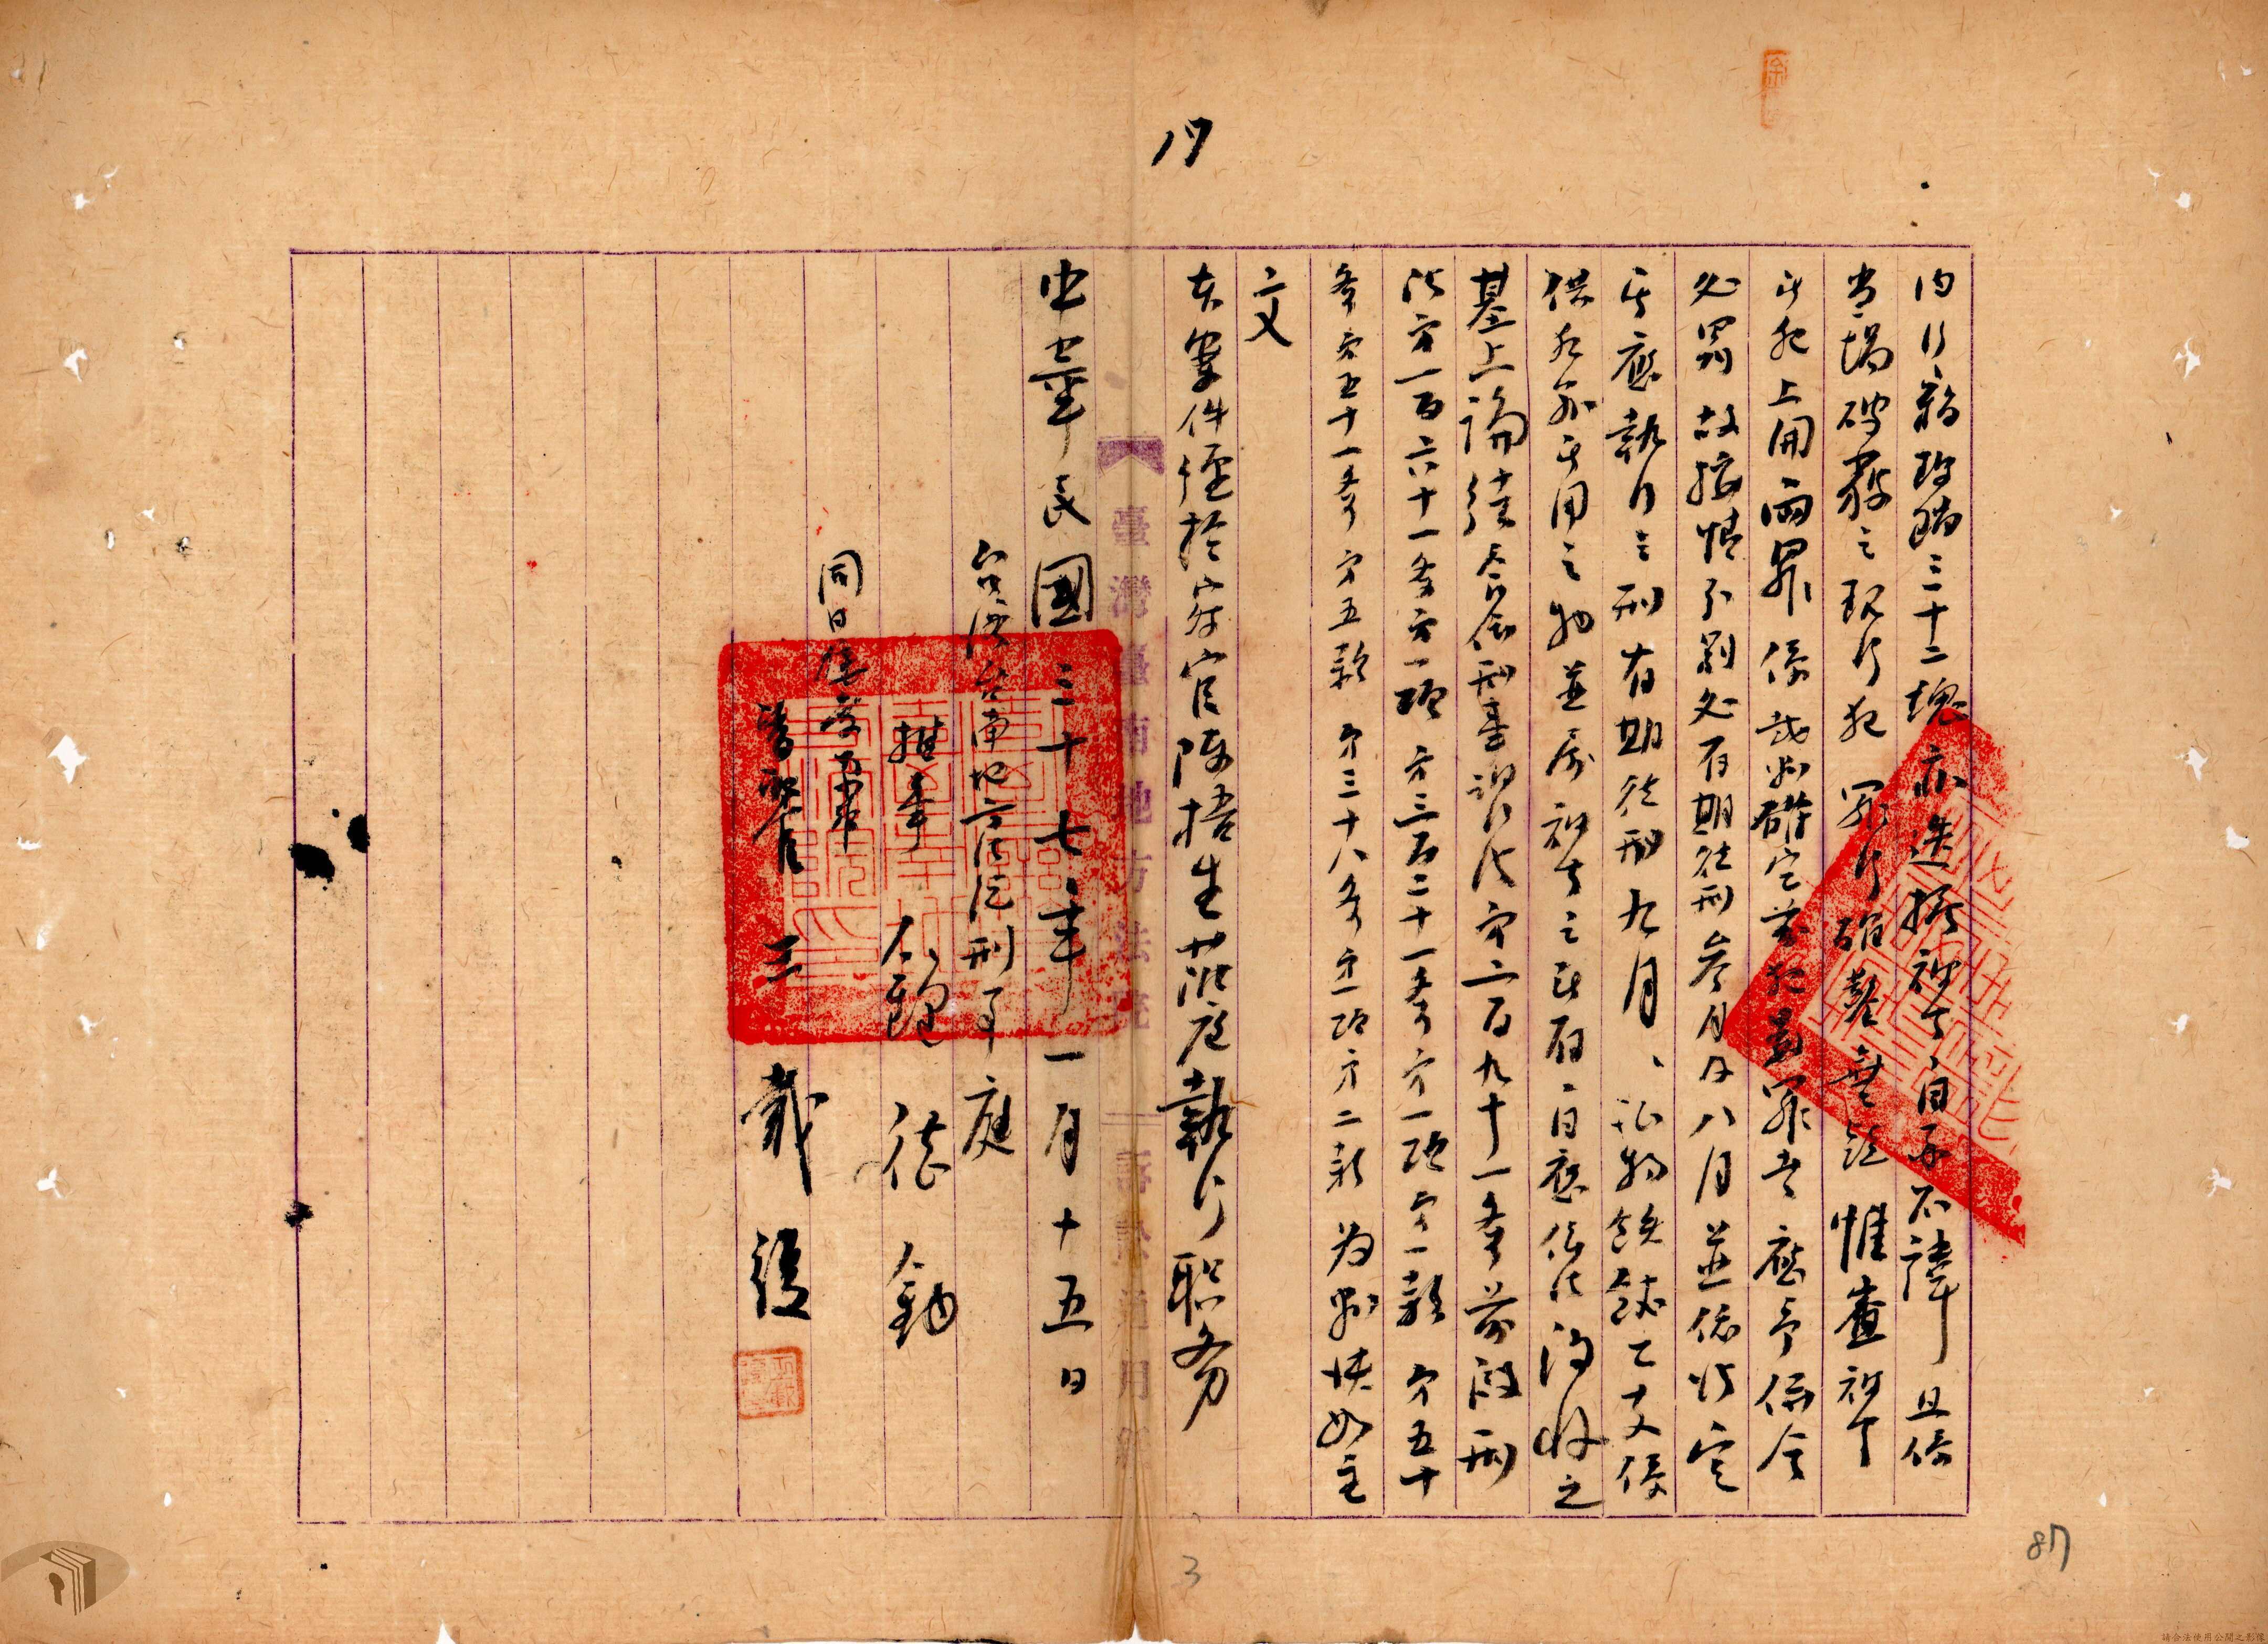 17
內行竊玻璃三十二塊亦迭據被告自承不諱且係
當場破獲之現行犯罪行確鑿無疑惟查被告
所犯上開兩罪係裁判確定前犯數罪者應予依令
處罰故按情分別處有期徒刑叁月及八月並依法定
其應執行之刑有期徒刑九月、証物鉄錶乙支係
供犯罪所用之物並屬被告之所有自應依法沒收之
基上論結合依刑事訴訟法第二百九十一條前段刑
法第一百六十一條第一項第三百二十一條第一項第一款第五十
條第五十一條第五款第三十八條第一項第二款為判決如主
文
本案件經檢察官陳梧生蒞庭執行职务
中華民國三十七年一月十五日
台灣台南地方法院刑事庭
推事
同日
書記官 王
臺灣臺南地方法院
87
3
請合法使用公開之影像